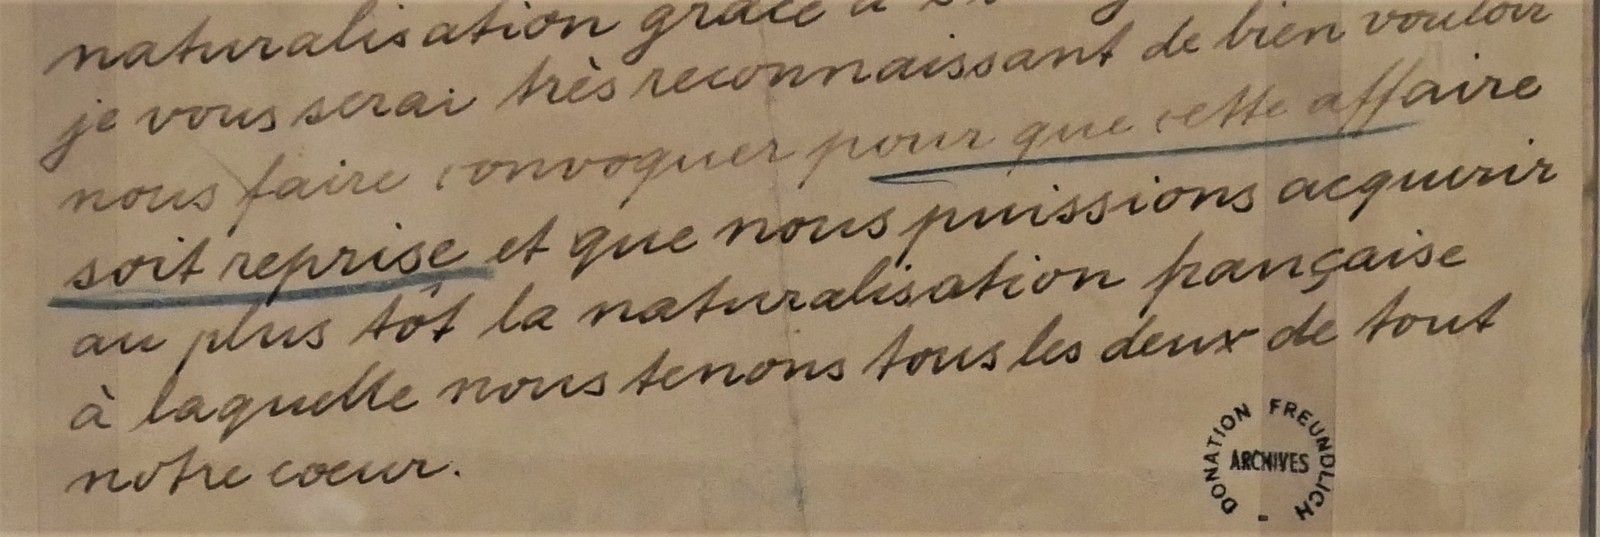 naturalisation grâce à
je vous serai très reconnaissant de bien vouloir
nous faire convoquer pour que cette affaire
soit reprise et que nous puissions acquerir
au plus tôt la naturalisation française
à laquelle nous tenons tous les deux de tout
notre cœur.
DONATION FREUNDLICH -
ARCHIVES